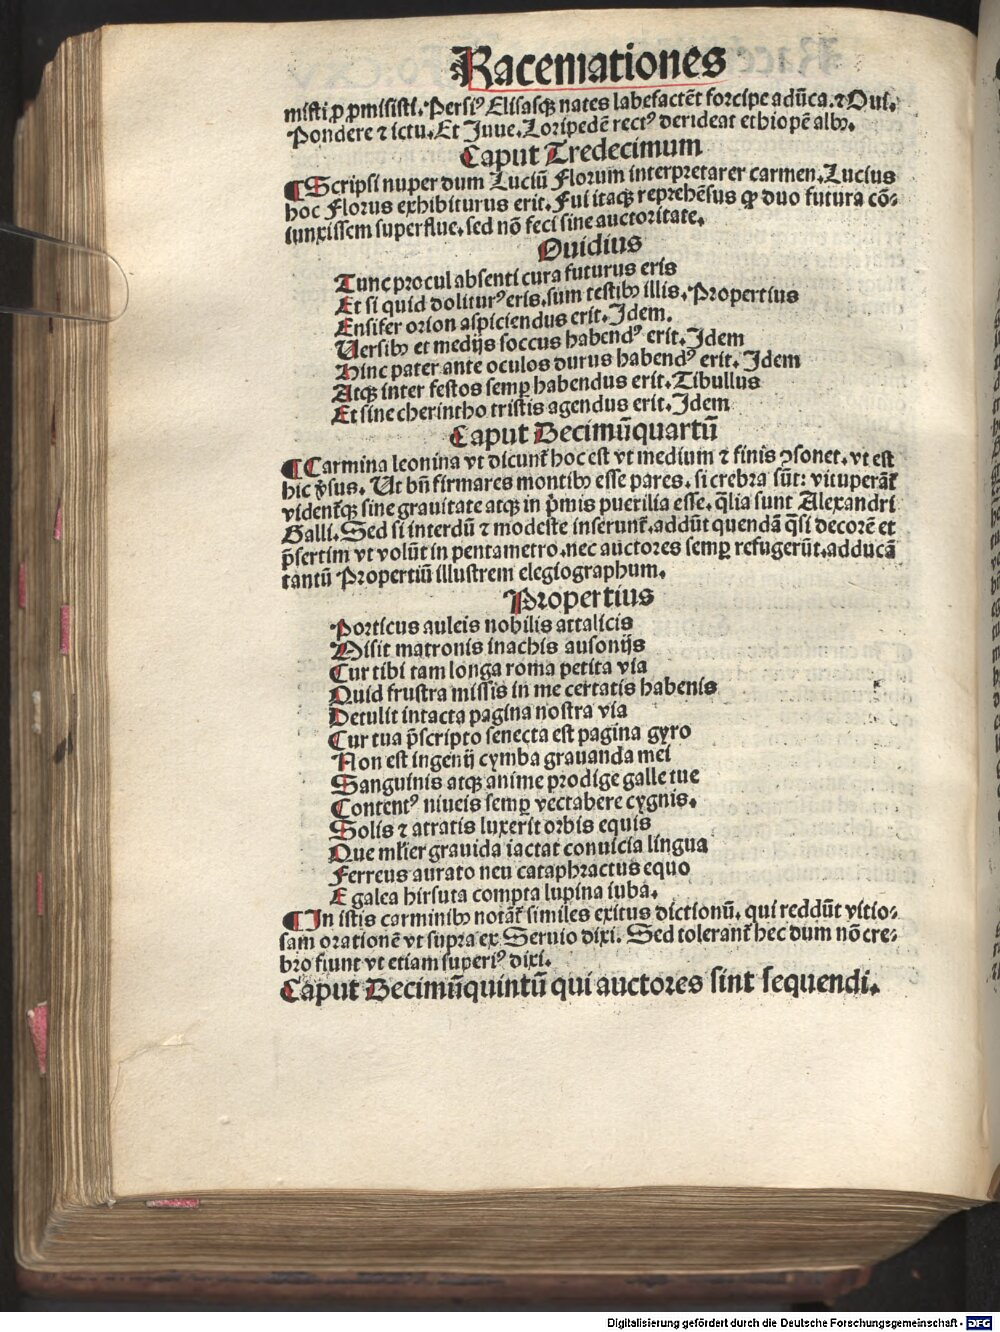 Racemationes
misti ꝓ ꝓmisisti. Persiꝰ Elisasqꝫ nates labefactēt forcipe adūca. ⁊ Oui.
Pondere ⁊ ictu. Et Juue. Loripedē rectꝰ derideat ethiopē albꝰ.
Caput Tredecimum
¶ Scripsi nuper dum Luciū Florum interpretarer carmen. Lucius
hoc Florus exhibiturus erit. Fui itaqꝫ reprehēsus ꝙ duo futura cō-
iunxissem superflue. sed nō feci sine auctoritate.
Ouidius
Tunc procul absenti cura futurus eris
Et si quid doliturꝰ eris. sum testibꝰ illis. Propertius
Ensifer orion aspiciendus erit. Idem.
Uersibꝰ et medijs soccus habendꝰ erit. Idem
Hinc pater ante oculos durus habendꝰ erit. Idem
Atqꝫ inter festos semꝑ habendus erit. Tibullus
Et sine cherintho tristis agendus erit. Idem
Caput Decimūquartū
¶ Carmina leonina vt dicunt̄ hoc est vt medium ⁊ finis ꝯsonet. vt est
hic v̄sus. Ut bn̄ firmares montibꝰ esse pares. si crebra sūt: vituperāt̄
vident̄qꝫ sine grauitate atqꝫ in p̄mis puerilia esse. q̄lia sunt Alexandri
Galli. Sed si interdū ⁊ modeste inserunt̄. addūt quendā q̄si decorē et
p̄sertim vt volūt in pentametro. nec auctores semꝑ refugerūt. adducā
tantū Propertiū illustrem elegiographum.
Propertius
Porticus auleis nobilis attalicis
Misit matronis inachis ausonijs
Cur tibi tam longa roma petita via
Quid frustra missis in me certatis habenis
Detulit intacta pagina nostra via
Cur tua p̄scripto senecta est pagina gyro
Non est ingenij cymba grauanda mei
Sanguinis atqꝫ anime prodige galle tue
Contentꝰ niueis semꝑ vectabere cygnis.
Solis ⁊ atratis luxerit orbis equis
Que ml̄ier grauida iactat conuicia lingua
Ferreus aurato neu cataphractus equo
E galea hirsuta compta lupina iuba.
¶ In istis carminibꝰ notāt̄ similes exitus dictionū. qui reddūt vitio-
sam orationē vt supra ex Seruio dixi. Sed tolerant̄ hec dum nō cre-
bro fiunt vt etiam superiꝰ dixi.
Caput Decimūquintū qui auctores sint sequendi.
Digitalisierung gefördert durch die Deutsche Forschungsgemeinschaft - DFG